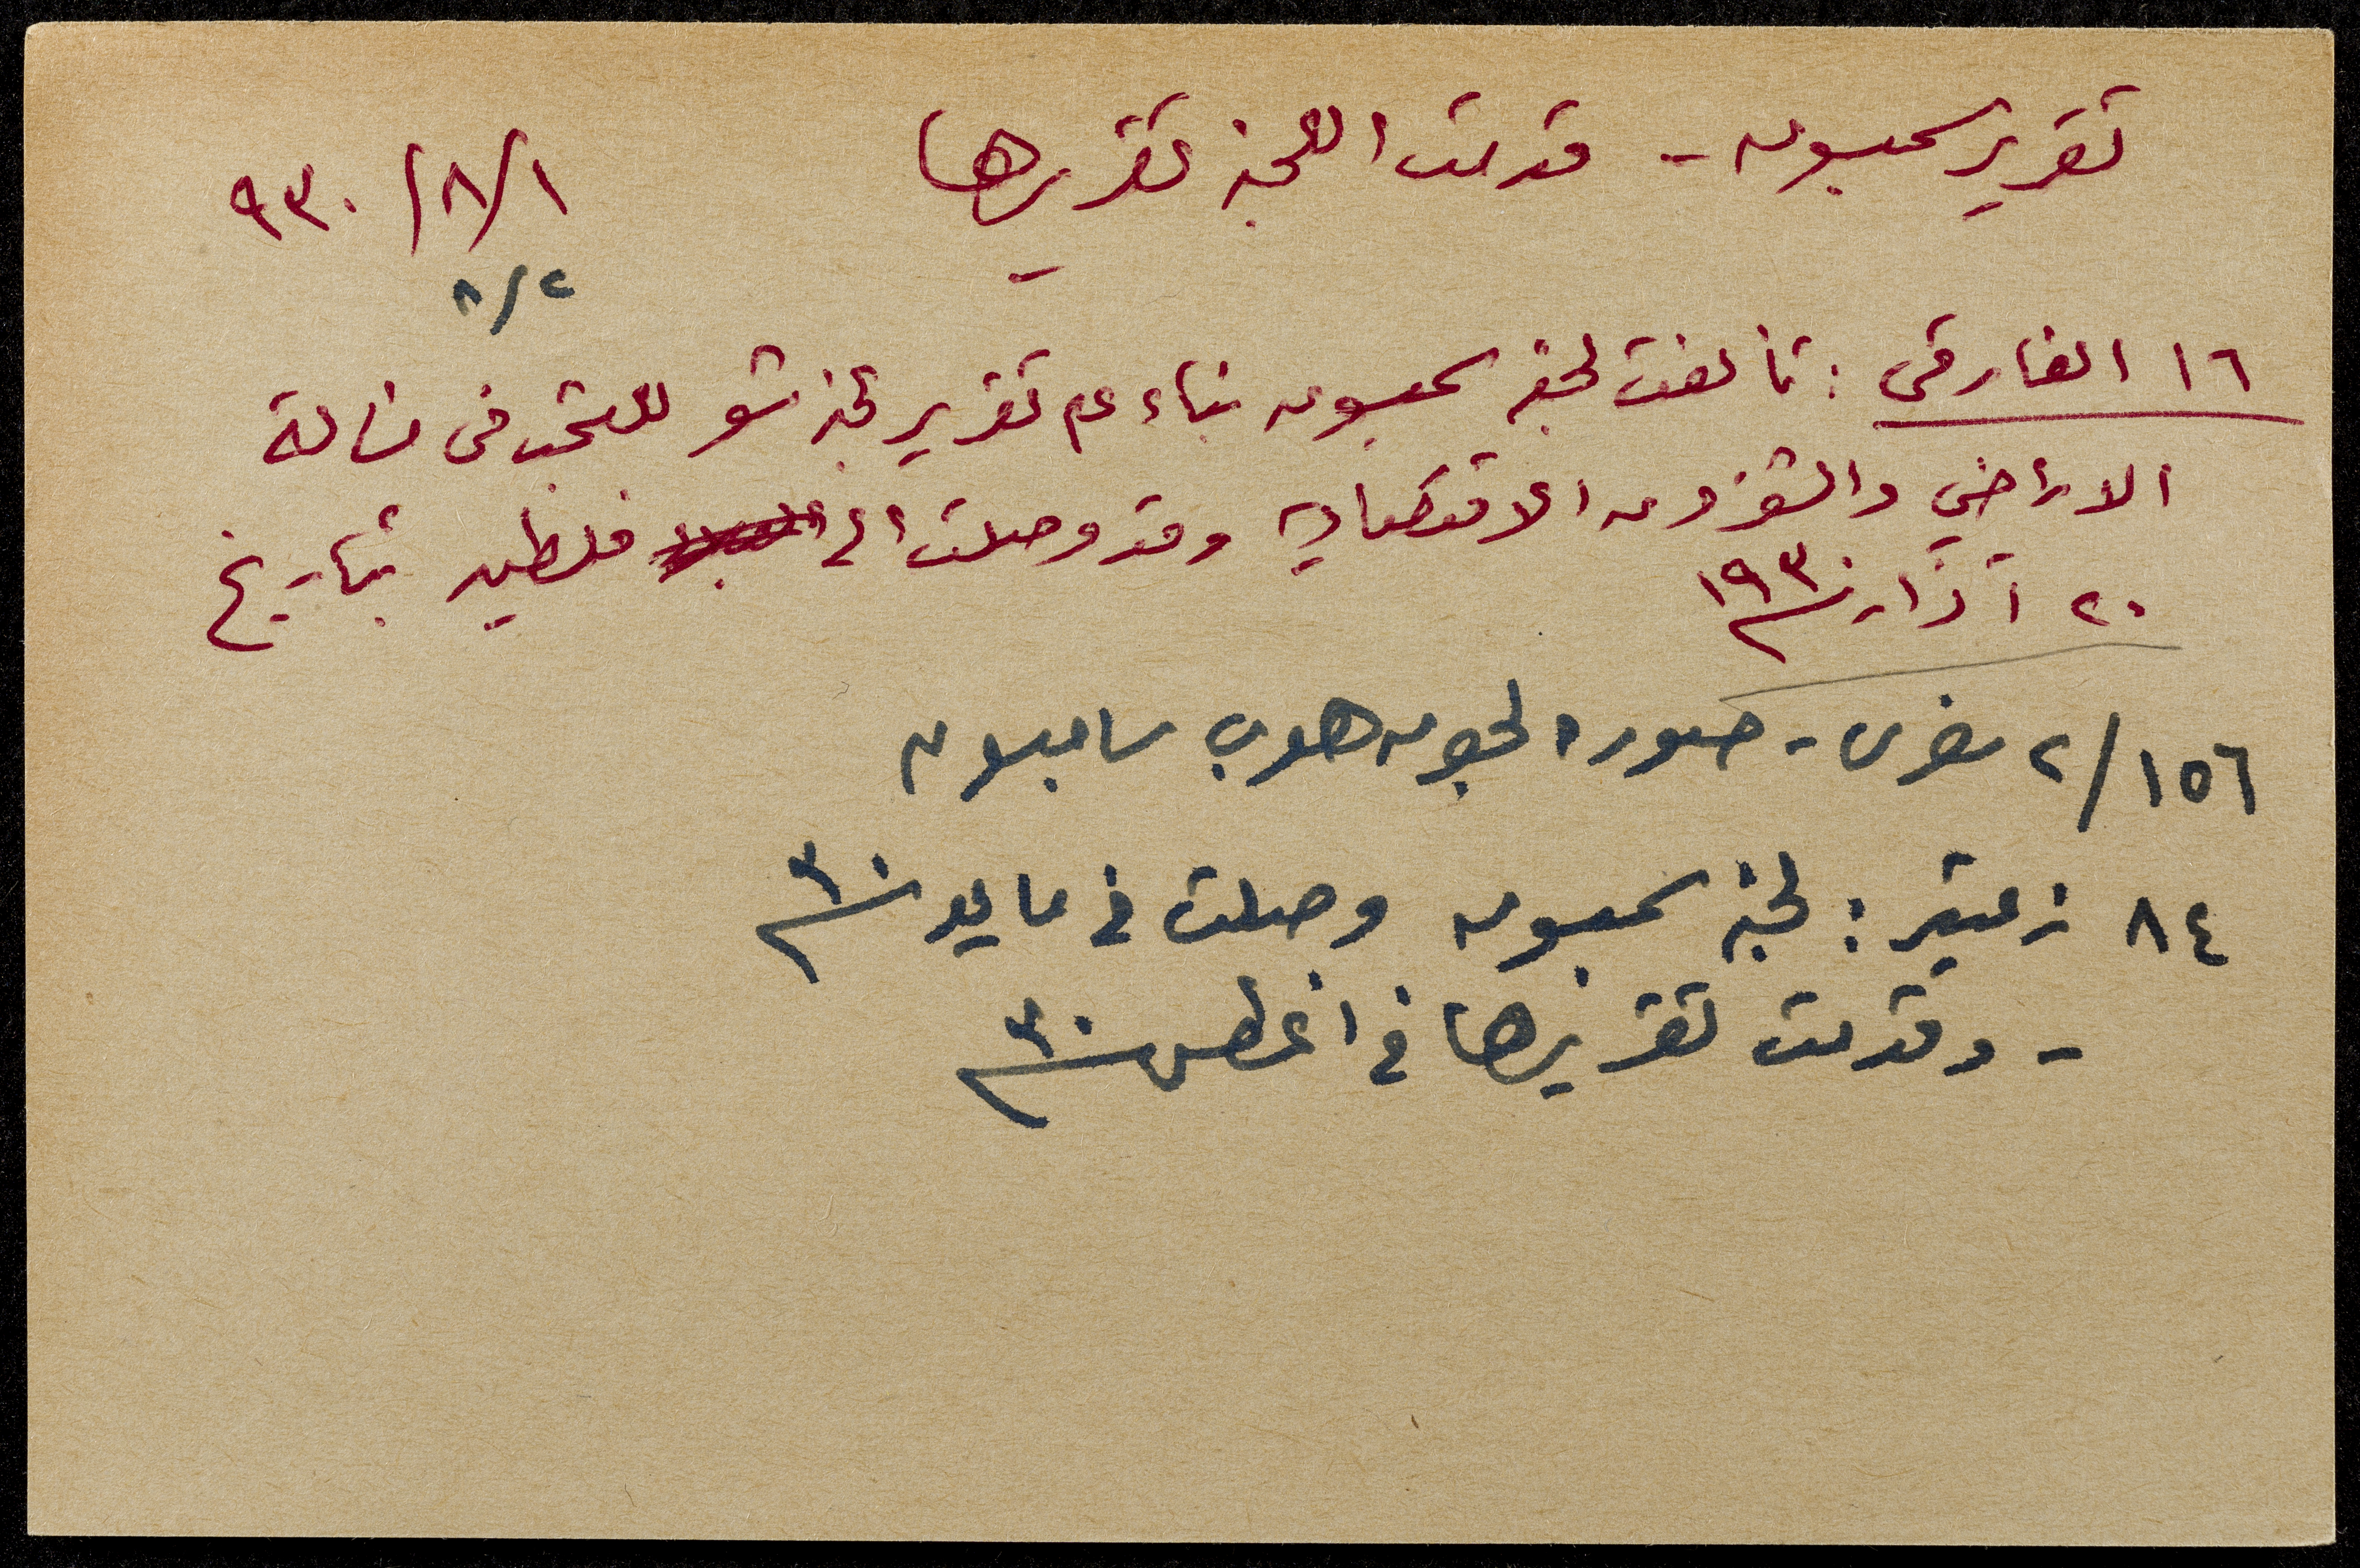 تقرير سمبسون - قدمت اللجنة تقريرها ١/٨/٩٣٠
٢/٨
١٦ الفارقي : تألفت لجنة سمبسون بناء على تقرير لجنة شو للبحث في مسألة
الاراضي والشؤون الاقتصادية وقد وصلت الى فلسطين بتاريخ
٢٠ آذار سنة ١٩٣٠
١٥٦/٢ - صورة لجون هوب سامبسون
٨٤ زعيتر : لجنة سمبسون وصلت في مايو سنة ٣٠
- وقدمت تقريرها في اغسطس سنة ٣٠